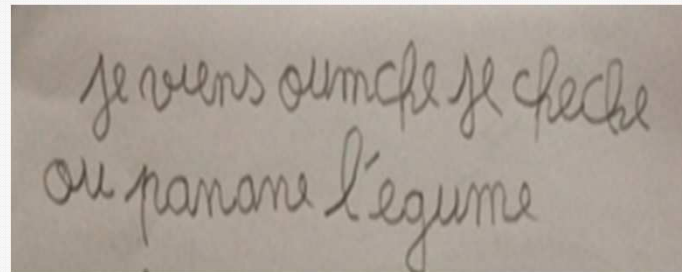 je viens oumche je cheche
ou panane l'égume